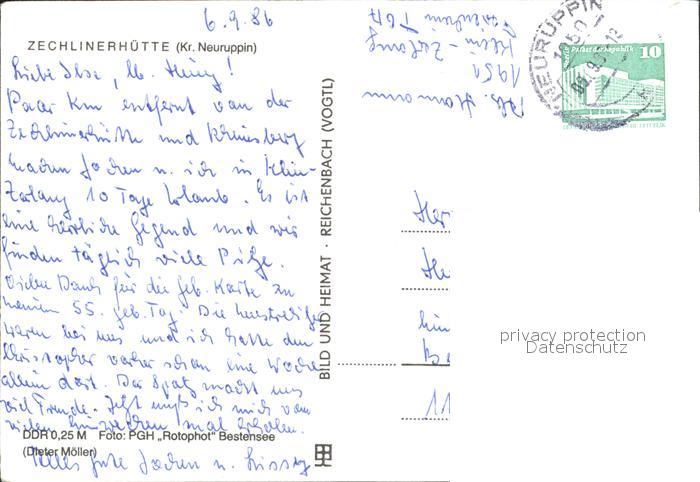 6.9.86
ZECHLINERHÜTTE (Kr. Neuruppin)
Liebe Ilse, lb. Heinz!
Paar km entfernt von der
Zechlinerhütte und Rheinsberg
machen Jochen u. ich in Klein-
Zerlang 10 Tage Urlaub. Es ist
eine herrliche Gegend und wir
finden täglich viele Pilze.
Vielen Dank für die Geb. Karte zu
meinem 55. Geb. Tag. Die
waren bei uns und ich hatte den
Christopher vorher schon eine Woche
allein dort. Der Spatz macht uns
viel Freude. Jetzt muß ich mich vom
vielen mal erholen.
DDR 0,25 M Foto: PGH „Rotophot" Bestensee
(Dieter Möller)
Alles Gute Jochen u. Sissy
BILD UND HEIMAT · REICHENBACH (VOGTL)
Abs. Hamann
1951
Klein-Zerlang
NEURUPPIN
1950
06.9.8
Palast der Republik
10
DDR
Her
He
hin
B
11
privacy protection
Datenschutz